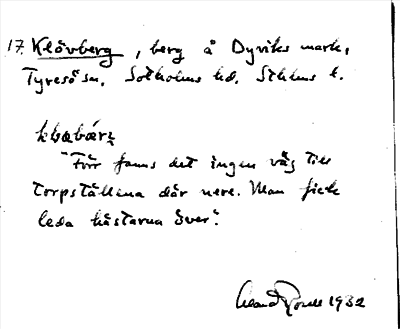 17. Klövberg, berg å Dyviks mark,
Tyresö sn. Sotholms hd. Sthlms l.
"Förr fanns det ingen väg till
torpställena där nere. Man fick
leda hästarna över."
1932